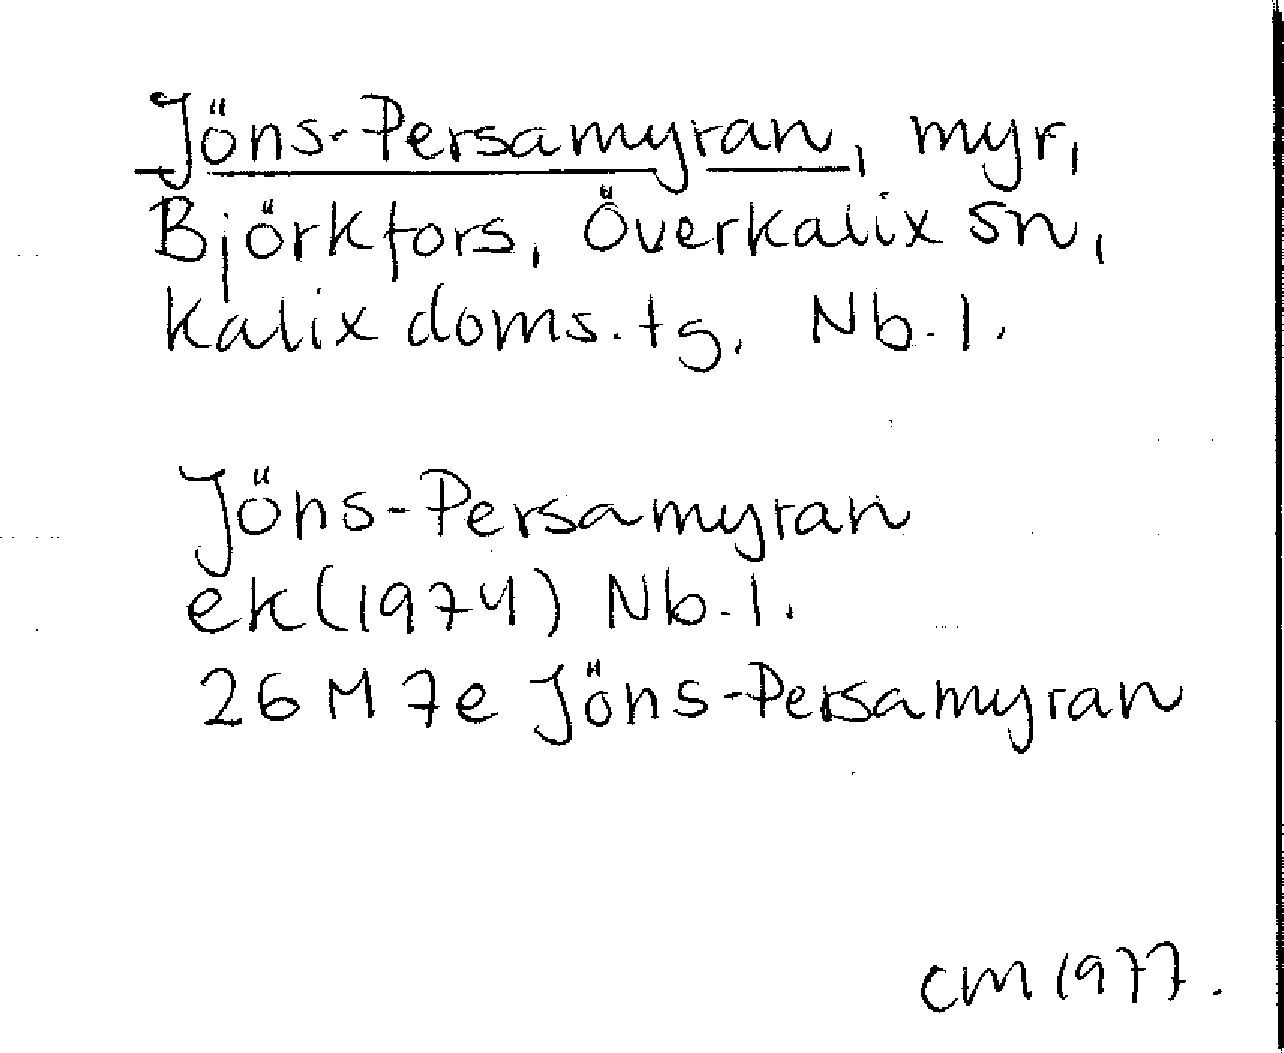 Jöns-Persamyran, myr,
Björkfors, Överkalix sn,
Kalix doms.tg. Nb.l.
Jöns-Persamyran
ek(1974) Nb.l.
26 M 7e Jöns-Persamyran
CM 1977.